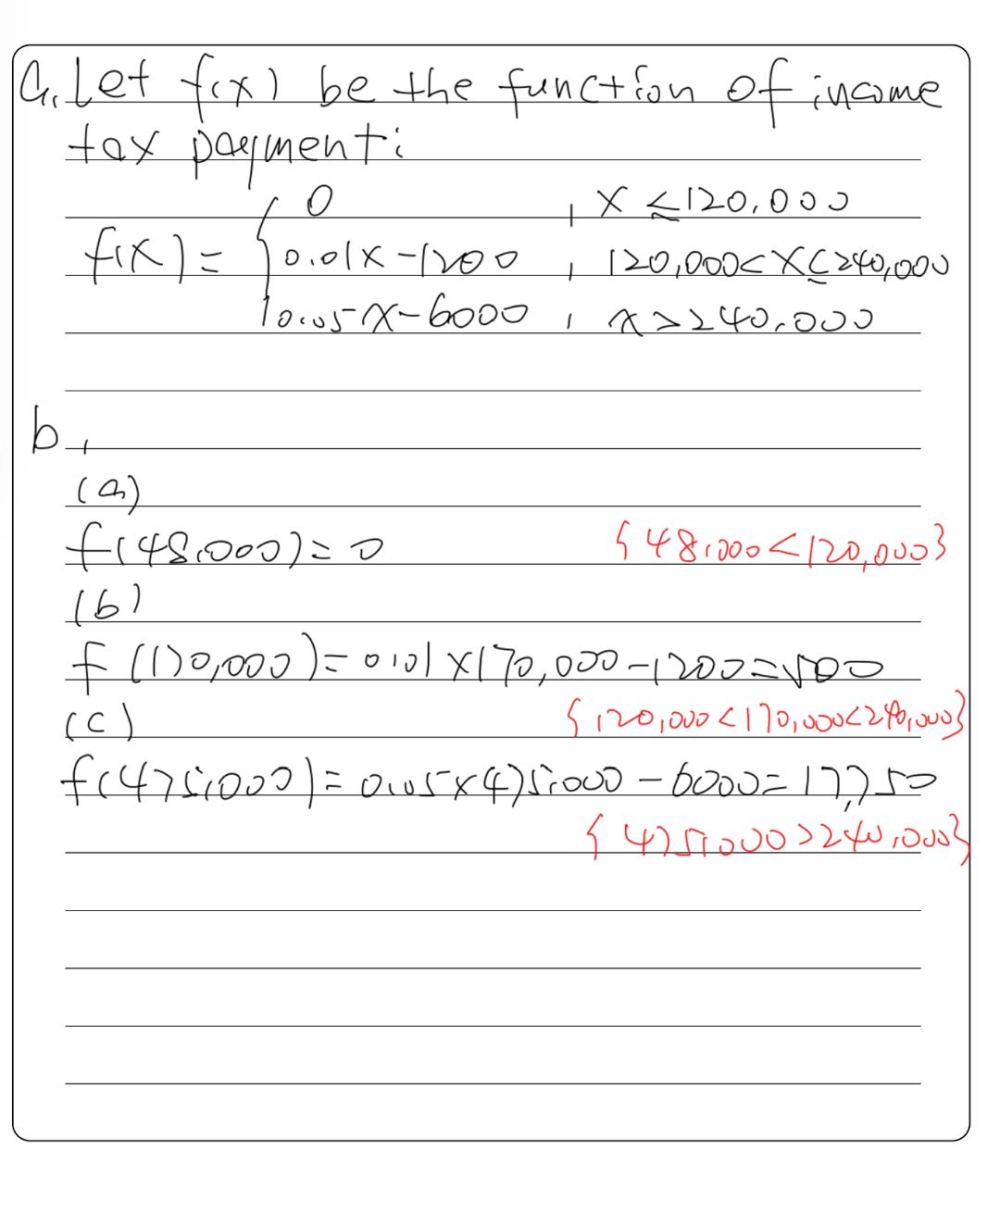 a. Let f(x) be the function of income
tax payment:
f(x) = { 0 , x ≤ 120,000
0.01x - 1200 , 120,000 < x ≤ 240,000
0.05x - 6000 , x > 240,000
b.
(a)
f(48,000) = 0 {48,000 < 120,000}
(b)
f(170,000) = 0.01 × 170,000 - 1200 = 500
{120,000 < 170,000 < 240,000}
(c)
f(475,000) = 0.05 × 475,000 - 6000 = 17,750
{475,000 > 240,000}